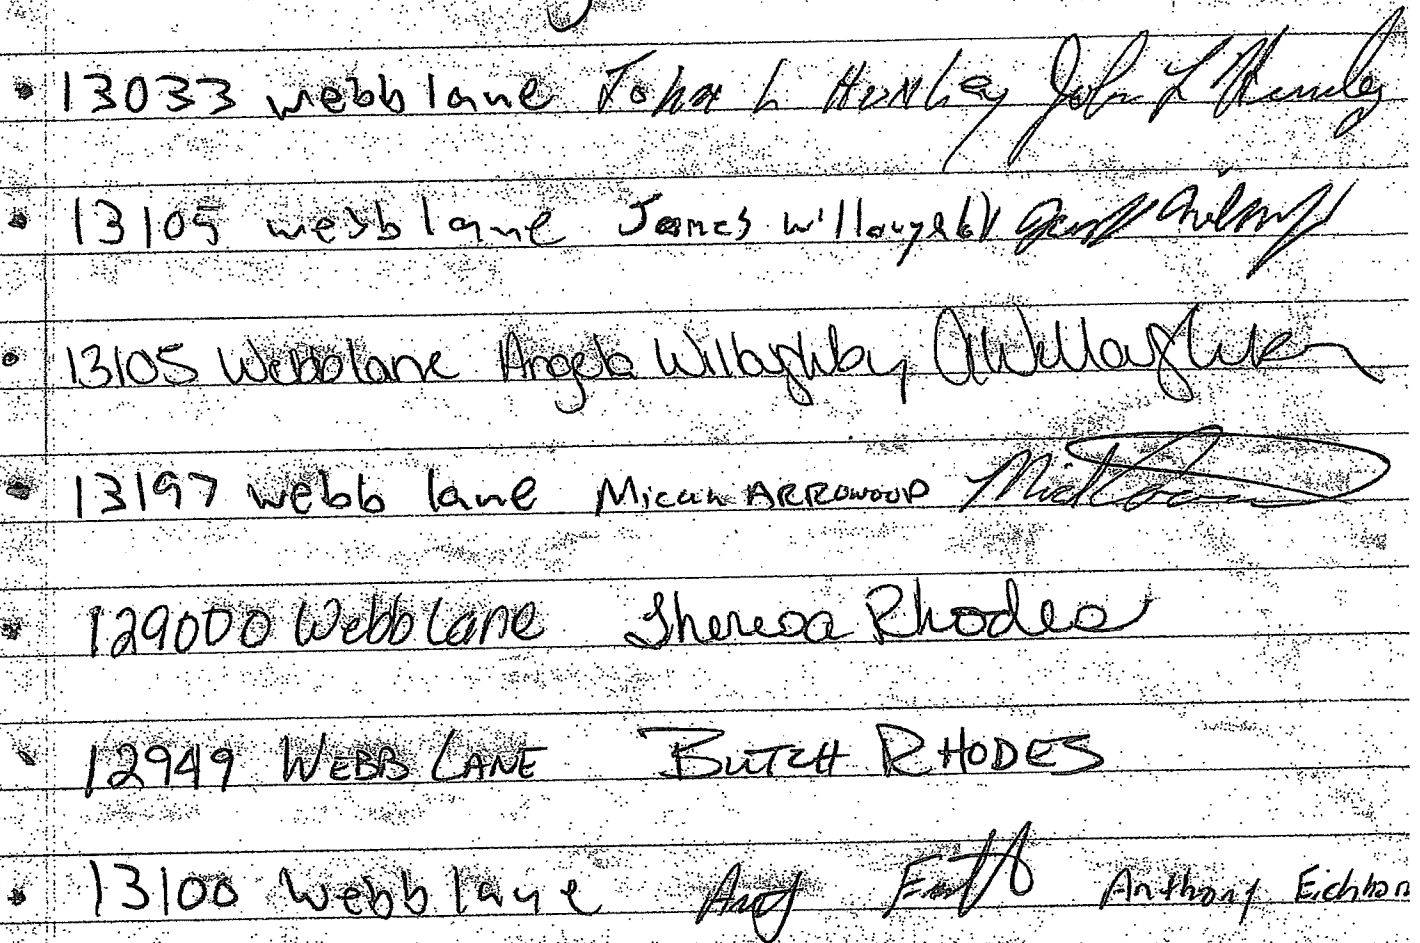 13033 webb lane John L Hensley John L Hensley
13105 webb lane James Willoughby
13105 Webb lane Angela Willoughby AWilloughby
13197 webb lane Micah ARROWOOD
129000 Webb Lane Theresa Rhodes
12949 WEBB LANE BUTCH RHODES
13100 webb lane Anthony Eichhorn